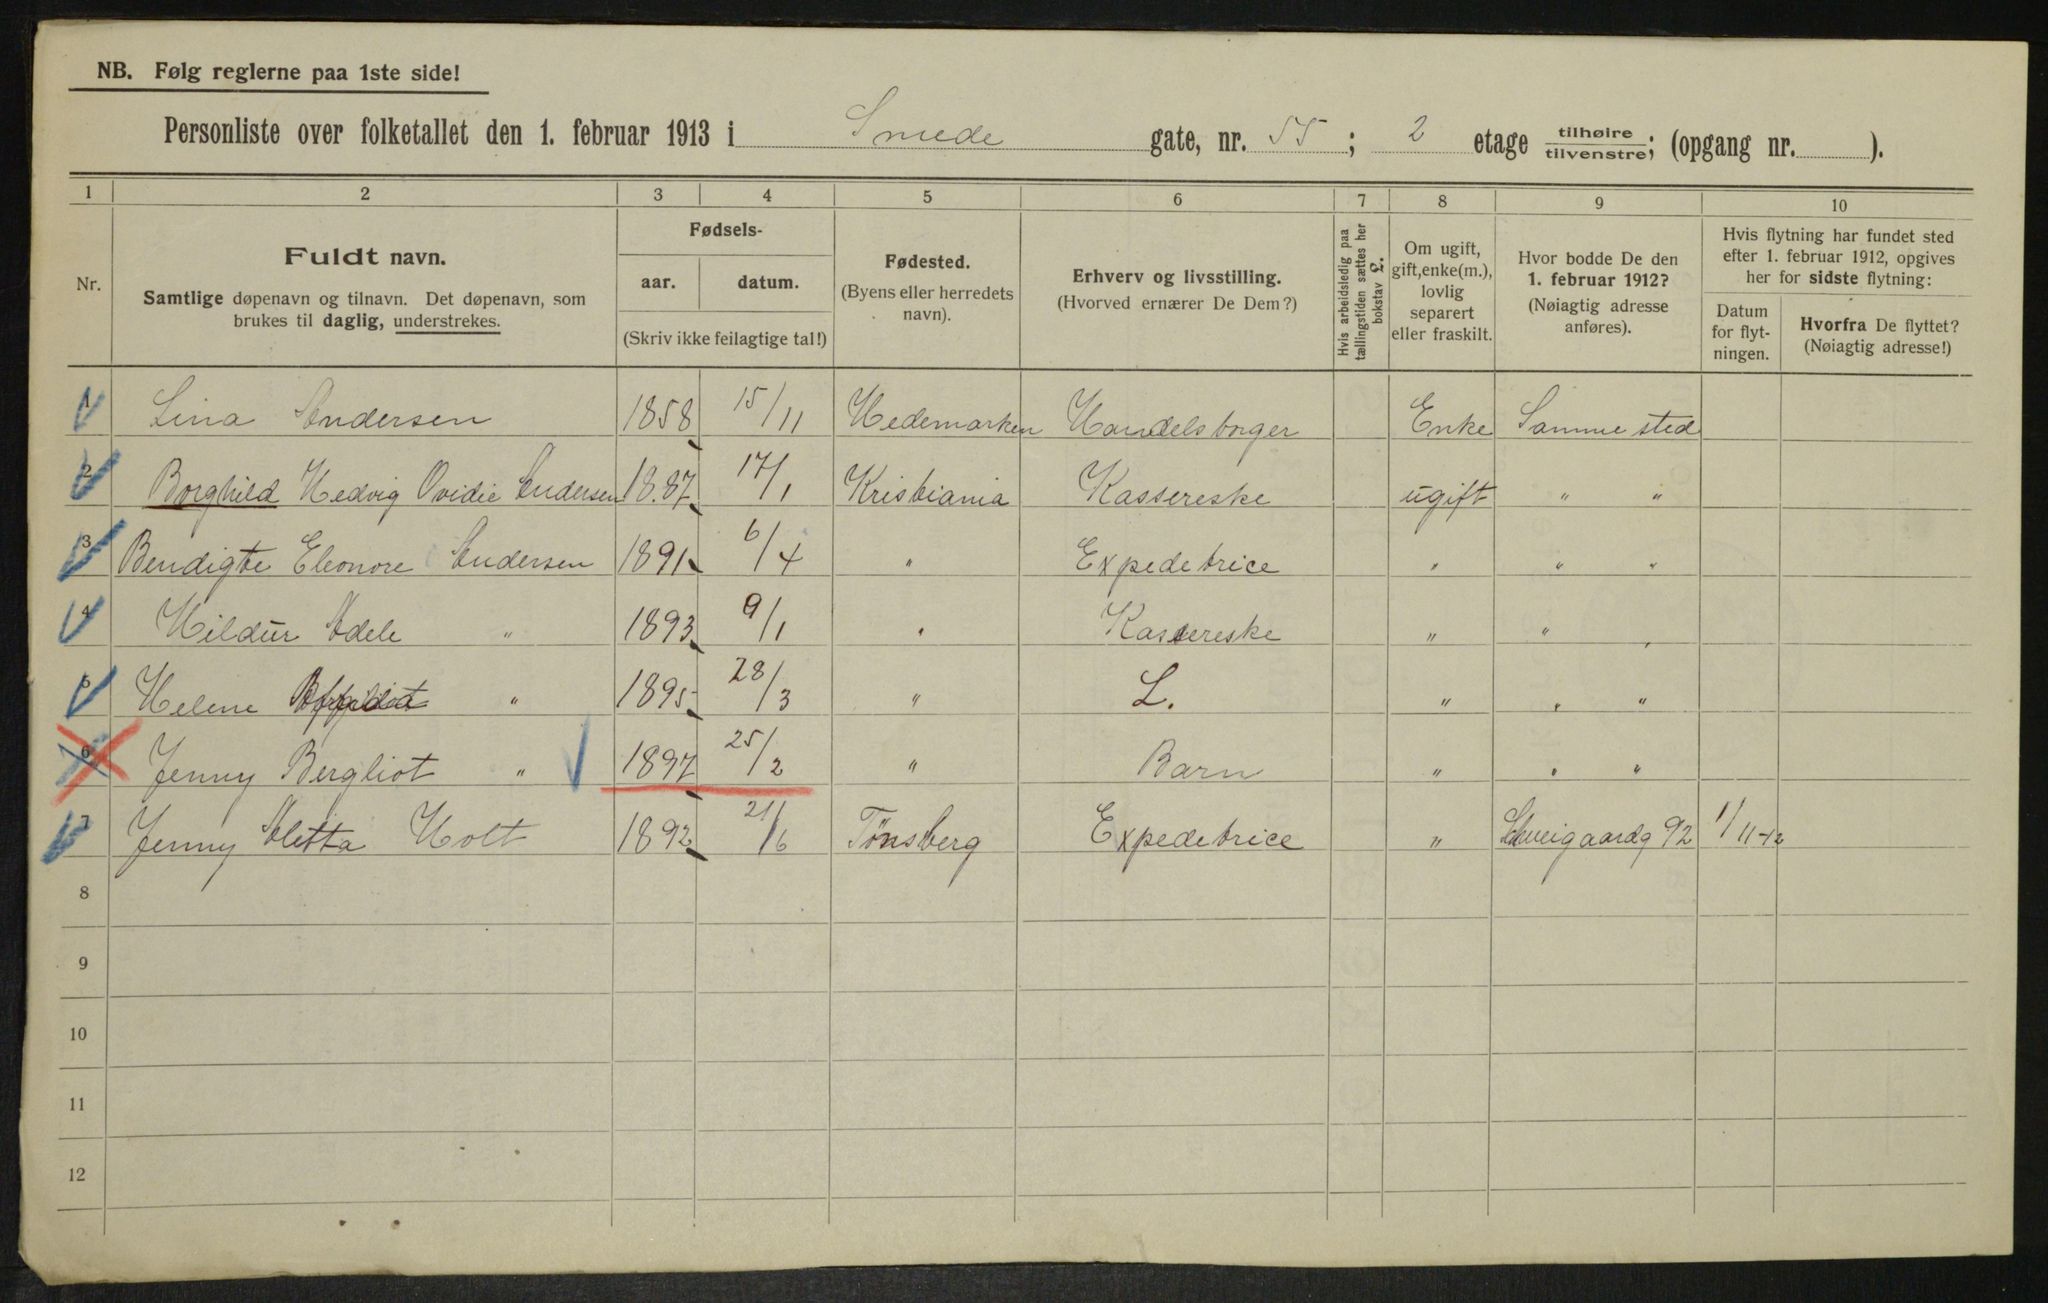 NB. Følg reglerne paa 1ste side!
Personliste over folketallet den 1. februar 1913 i Smede gate, nr. 55; 2 etage tilhøire/tilvenstre; (opgang nr. ).
1 2 3 4 5 6 7 8 9 10
Nr.
Fuldt navn.
Samtlige døpenavn og tilnavn. Det døpenavn, som
brukes til daglig, understrekes.
Fødsels-
aar. datum.
(Skriv ikke feilagtige tal!)
Fødested.
(Byens eller herredets
navn).
Erhverv og livsstilling.
(Hvorved ernærer De Dem?)
Hvis arbeidsledig paa
tællingstiden sættes her
bokstav L.
Om ugift,
gift, enke(m.),
lovlig
separert
eller fraskilt.
Hvor bodde De den
1. februar 1912?
(Nøiagtig adresse
anføres).
Hvis flytning har fundet sted
efter 1. februar 1912, opgives
her for sidste flytning:
Datum
for flyt-
ningen.
Hvorfra De flyttet?
(Nøiagtig adresse!)
1 Lina Andersen 1858 15/11 Hedemarken Handelsborger Enke Samme sted
2 Borghild Hedvig Ovidie Andersen 1887 17/1 Kristiania Kassereske ugift " "
3 Bendigte Eleonore Andersen 1891 6/4 " Expedetrice " " "
4 Hildur Adele " 1893 9/1 " Kassereske " " "
5 Helene " 1895 28/3 " L. " " "
6 Jenny Bergliot " 1897 25/2 " Barn " " "
7 Jenny Aletta Holt 1892 21/6 Tønsberg Expedetrice " Schweigaardg 92 1/11-12
8
9
10
11
12